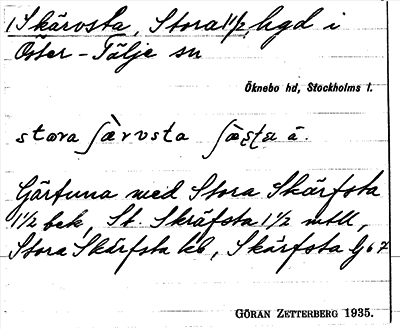 1 Skärvsta, Stora 1 1/2, hgd i
Öster-Tälje sn
Öknebo hd, Stockholms l.
stora ʃærvsta
Gärtuna med Stora Skärfsta
1 1/2 bek, St. Skräfsta 1 1/2 mtll,
Stora Skärfsta kb, Skärfsta G 67
GÖRAN ZETTERBERG 1935.